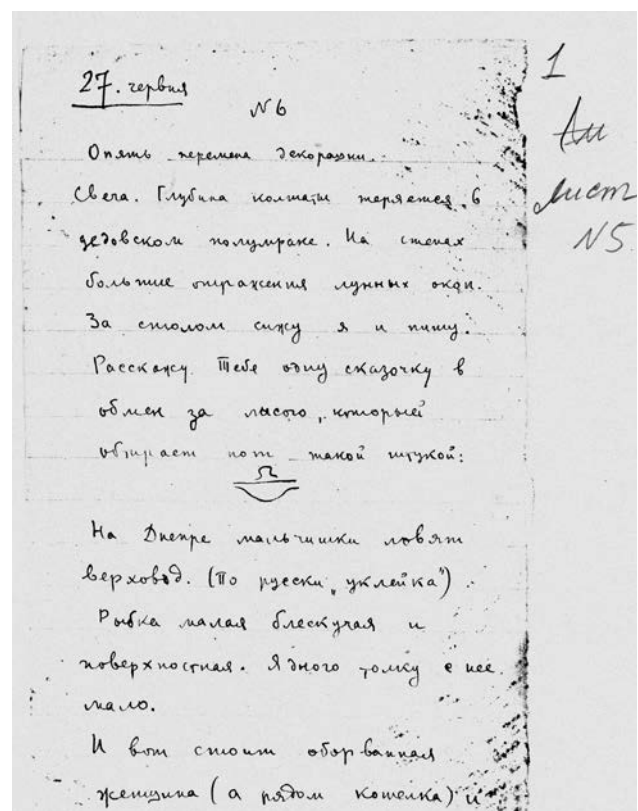 27. червня
1
№ 6
лист
№ 5
Опять перемена декорации.
Свеча. Глубина комнаты теряется в
дедовском полумраке. На стенах
большие отражения лунных окон.
За столом сижу я и пишу.
Расскажу Тебе одну сказочку в
обмен за лысого, который
обтирает пот такой штукой:
На Днепре мальчишки ловят
верховод. (По русски „уклейка")
Рыбка малая блескучая и
поверхностная. Ядного толку с нее
мало.
И вот стоит оборванная
женщина (а рядом кошелка) и